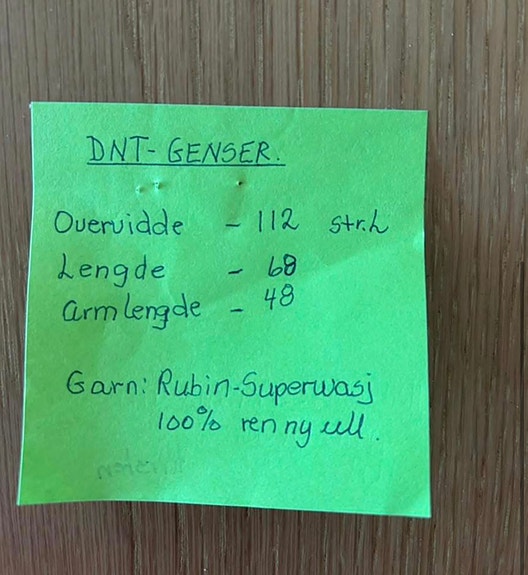 DNT-GENSER.
Overvidde - 112 str. L
Lengde - 68
armlengde - 48
Garn: Rubin-Superwasj
100% ren ny ull.